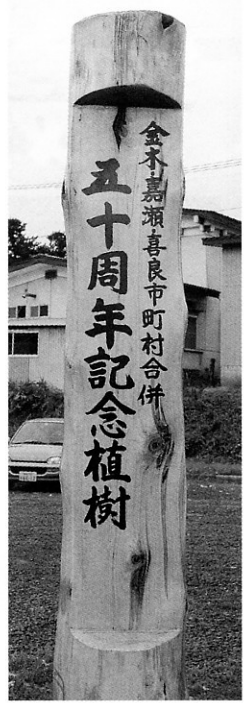 金木・嘉瀬・喜良市町村合併
五十周年記念植樹